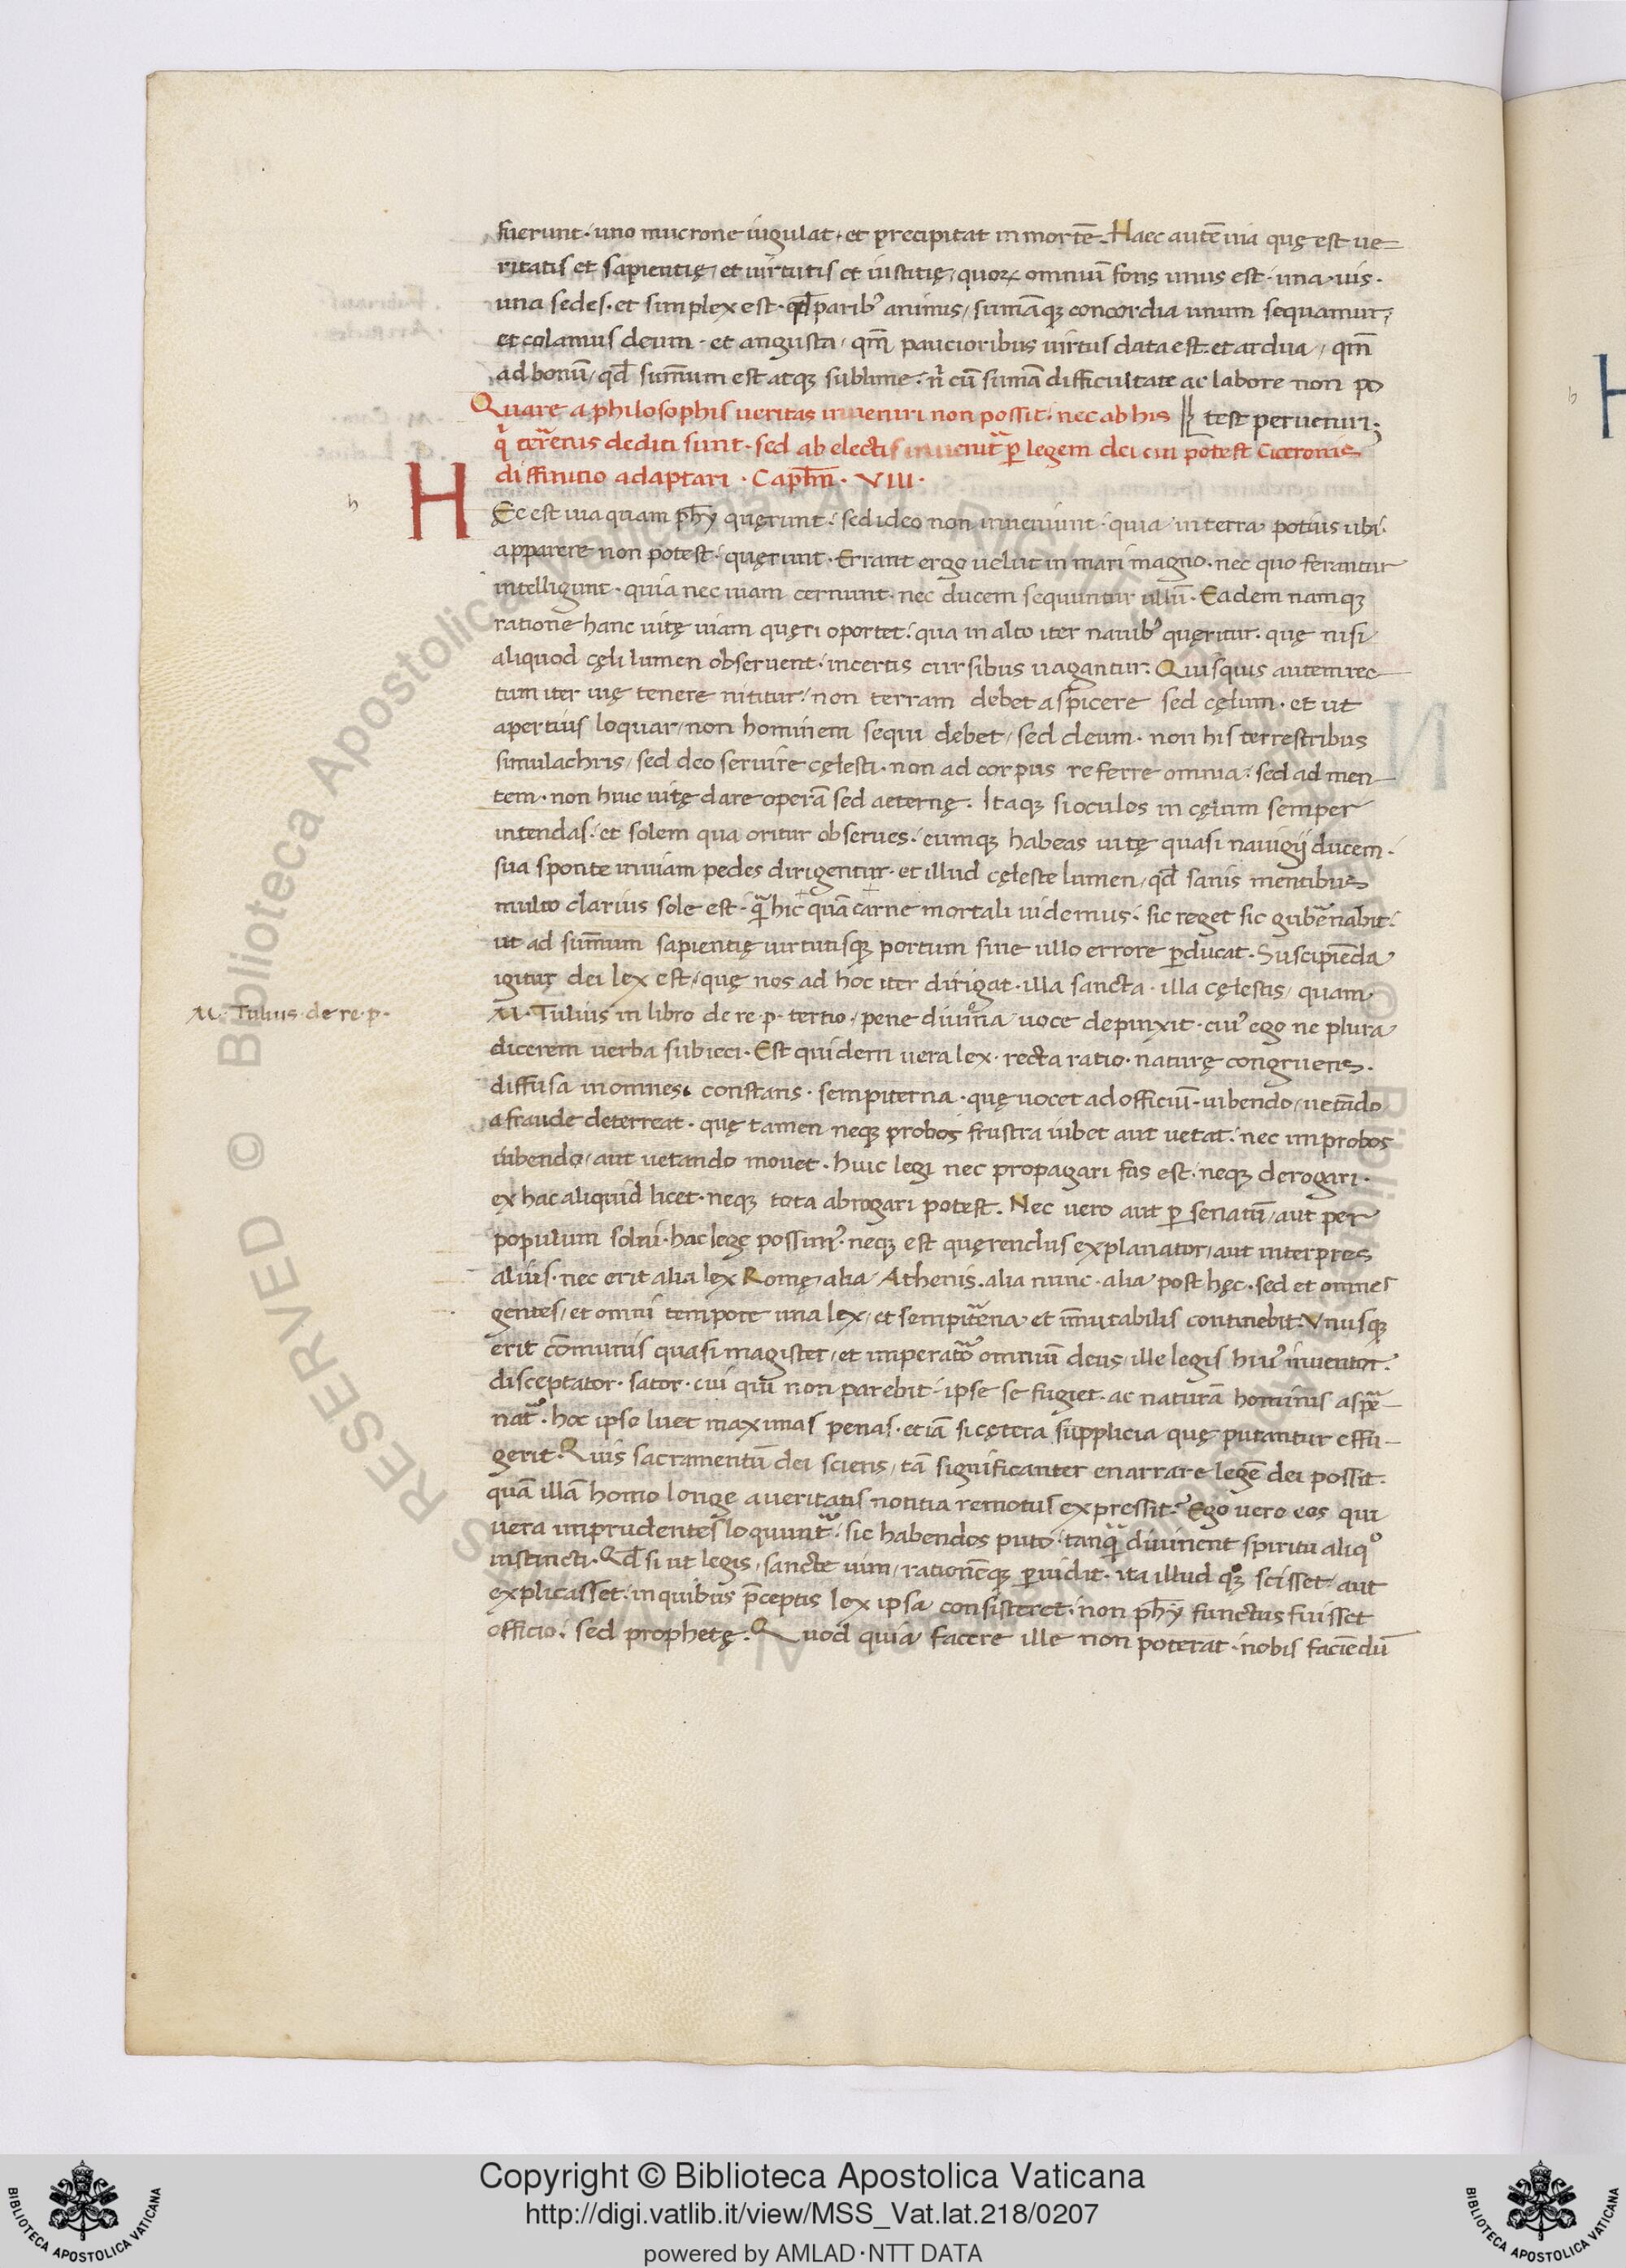 fuerunt · uno mucrone iugulat · et precipitat in mortē. Haec autē uia quę est ue-
ritatis et sapientię / et uirtutis et iustitię / quoꝝ omniū fons unus est · una uis ·
una sedes · et simplex est · qđ paribꝰ animis / sūmāqꝫ concordia unum sequamur /
et colamus deum · et angusta / qm̄ paucioribus uirtus data est · et ardua / qm̄
ad bonū / qđ sum̄um est atqꝫ sublime · nͥ cū sūmā difficultate ac labore non po
Quare a philosophis ueritas inueniri non possit · nec ab his || test perueniri ;
qͥ terrenis dediti sunt · sed ab electis inuenitͬ ꝑ legem dei cui potest Ciceronis
diffinitio adaptari · Capłm · VIII ·
h
HEc est uia quam phy̅ quęrunt · sed ideo non inueniunt · quia in terra potius ubi
apparere non potest · quęrunt · Errant ergo uelut in mari magno · nec quo ferantur
intelligunt · quia nec uiam cernunt · nec ducem sequuntur ullū · Eadem namqꝫ
ratione hanc uitę uiam quęri oportet · qua in alto iter nauibꝰ quęritur · quę nisi
aliquod cęli lumen obseruent · incertis cursibus uagantur. Quisquis autem rec-
tum iter uię tenere nititur / non terram debet aspicere sed cęlum · et ut
apertius loquar / non hominem sequi debet / sed deum · non his terrestribus
simulachris / sed deo seruire cęlesti · non ad corpus referre omnia · sed ad men-
tem · non huic uitę dare operā sed aeternę. Itaqꝫ si oculos in cęlum semper
intendas · et solem qua oritur obserues · eumqꝫ habeas uitę quasi nauigij ducem ·
sua sponte in uiam pedes dirigentur · et illud cęleste lumen / qđ sanis mentibus
multo clarius sole est · qͣ̄ hic quā carne mortali uidemus · sic reget sic gub̄nabit ·
ut ad sum̄um sapientię uirtutisqꝫ portum sine ullo errore ꝑducat. Suscipiēda
igitur dei lex est / quę nos ad hoc iter dirigat · illa sancta · illa cęlestis / quam
M. Tulius de re · p ·
M · Tulius in libro de re · p · tertio / pene diuina uoce depinxit · cuiꝰ ego ne plura
dicerem uerba subieci · Est quidem uera lex · recta ratio · naturę congruens ·
diffusa in omnes · constans · sempiterna · quę uocet ad officiū · iubendo / uetādo
a fraude deterreat · quę tamen neqꝫ probos frustra iubet aut uetat · nec improbos
iubendo / aut uetando mouet · huic legi nec propagari fas est · neqꝫ derogari ·
ex hac aliquid licet · neqꝫ tota abrogari potest. Nec uero aut ꝑ senatū / aut per
populum solui hac lege possimꝰ · neqꝫ est quęrendus explanator / aut interpres
alius · nec erit alia lex Romę / alia Athenis · alia nunc · alia post hęc · sed et omnes
gentes / et omni tempore una lex / et sempitͣena et īmutabilis continebit · Vnusqꝫ
erit cōmunis quasi magister / et imperatoͬ omniū deus / ille legis huiꝰ inuentor ·
disceptator · lator · cui qui non parebit · ipse se fugiet · ac naturā hominis asp̄-
natͬ · hoc ipso luet maximas penas · etiā si cętera supplicia quę putantur effu-
gerit · Quis sacramentū dei sciens / tā significanter enarrare legē dei possit ·
quā illā homo longe a ueritatis notitia remotus expressit · Ego uero eos qui
uera imprudentes loquuntͬ · sic habendos puto / tanqͣ̄ diuinent spiritu aliqͦ
instincti · Qđ si ut legis / sancte uim / rationēqꝫ ꝑuidit · ita illud qꝫ scisset / aut
explicasset · in quibus p̄ceptis lex ipsa consisteret · non phy̅ functus fuisset
officio · sed prophetę · Quod quia facere ille non poterat · nobis faciēdū
Copyright © Biblioteca Apostolica Vaticana
http://digi.vatlib.it/view/MSS_Vat.lat.218/0207
powered by AMLAD·NTT DATA
BIBLIOTECA APOSTOLICA VATICANA
BIBLIOTECA APOSTOLICA VATICANA